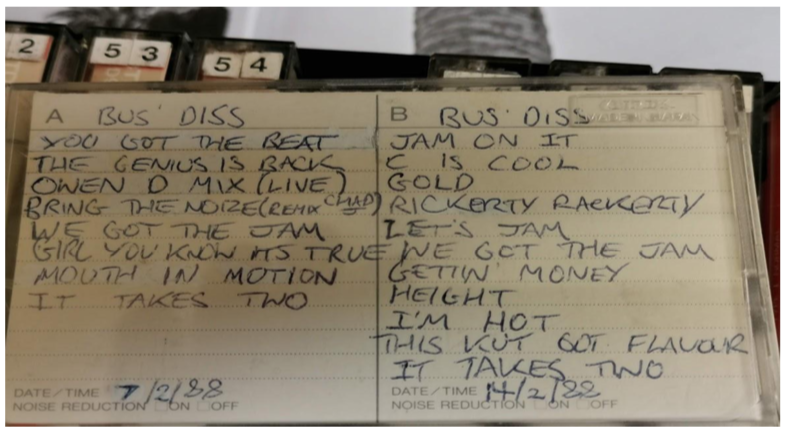 2
5 3
5 4
A BUS' DISS
YOU GOT THE BEAT
THE GENIUS IS BACK
OWEN D MIX (LIVE)
BRING THE NOIZE (REMIX CHAD)
WE GOT THE JAM
GIRL YOU KNOW ITS TRUE
MOUTH IN MOTION
IT TAKES TWO
DATE/TIME 7/2/88
NOISE REDUCTION ON OFF
B BUS' DISS
JAM ON IT
C IS COOL
GOLD
RICKERTY RACKERTY
LET'S JAM
WE GOT THE JAM
GETTIN' MONEY
HEIGHT
I'M HOT
THIS KUT GOT FLAVOUR
IT TAKES TWO
DATE/TIME 14/2/88
NOISE REDUCTION ON OFF